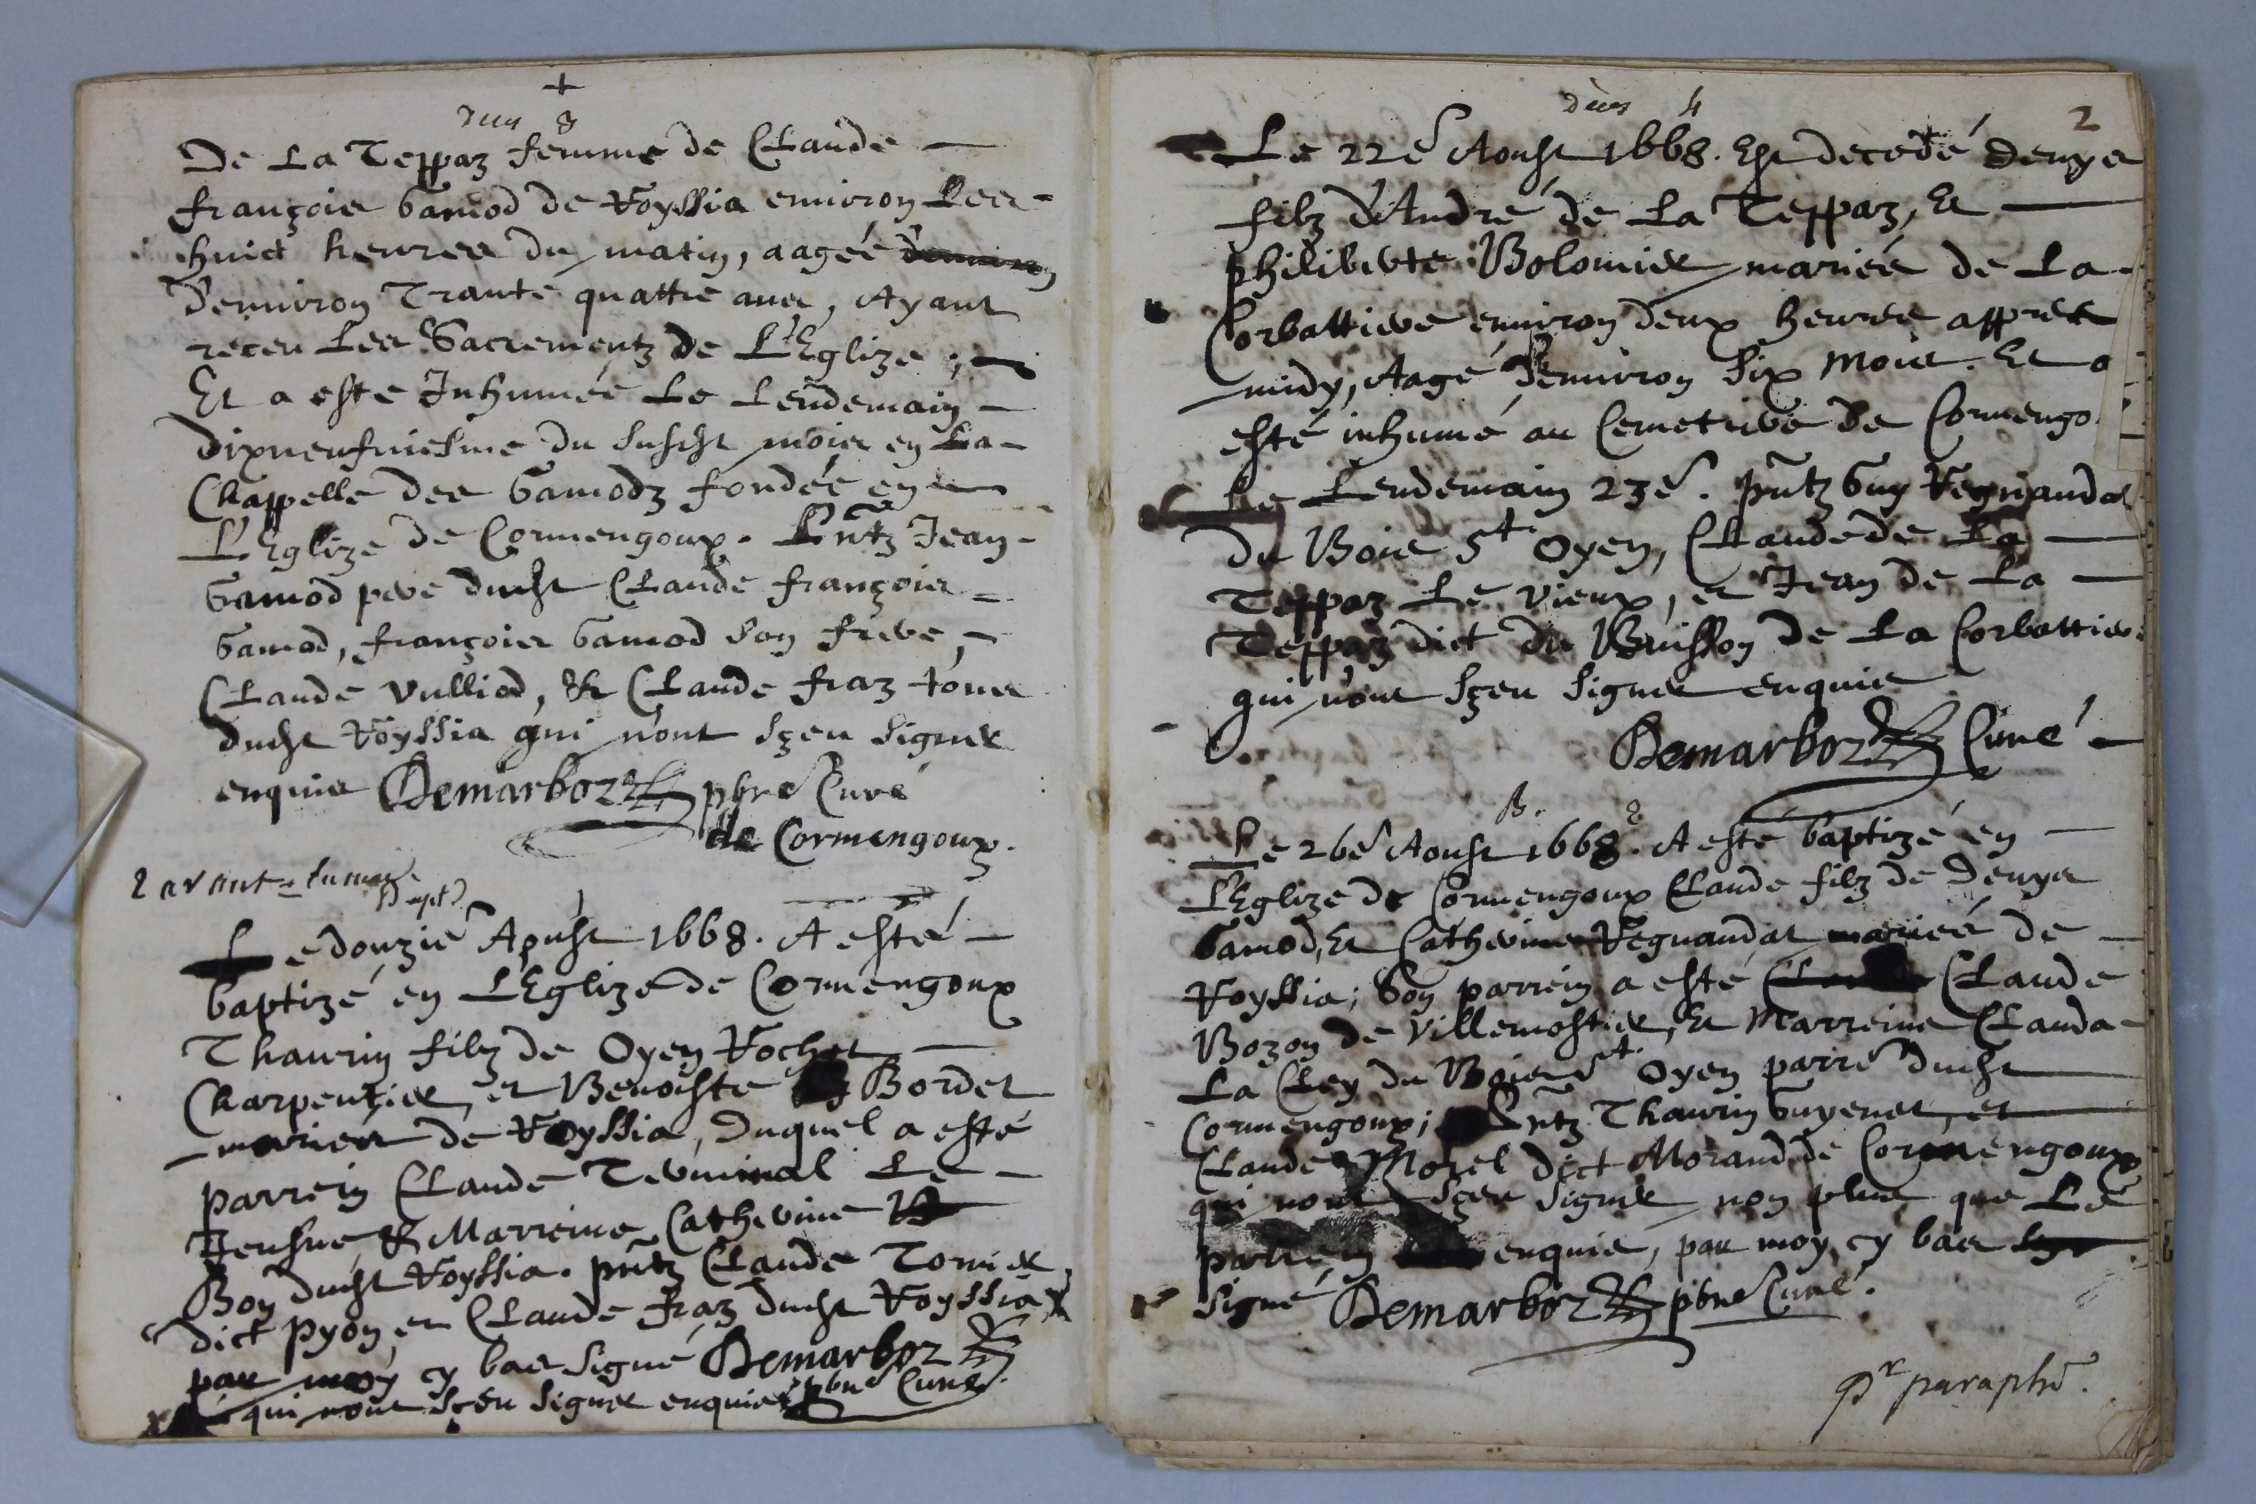 +
3
De La Teppaz femme de Claude
françois Gamod de Royssia environ Les
huict heures du matin, aagée
d'environ Trante quattre ans, Ayant
receu Les Sacrementz de L'Eglize ;
Et a este Inhumée Le Lendemain
dixneufuiesme du susdt mois en La
Chappelle des Gamodz fondée en
L'Eglize de Cormengoux. Pntz Jean
Gamod pere dudt Claude françois
Gamod, françois Gamod son frere,
Claude Vulliod, & Claude fraz tous
dudt Royssia qui n'ont sçeu signer
enquis Demarboz pbre Curé
de Cormengoux.
Bapt
Le douzie Aoust 1668. A esté
baptizé en L'Eglize de Cormengoux
Thaurin filz de Oyen Rochet
Charpentier, et Benoiste Bordet
mariés de Royssia, Duquel a esté
parrein Claude Le
Jeusne & Marreine Catherine
Boy dudt Royssia. pntz Claude Tornier
dict pyon, et Claude fraz dudt Royssia
par moy cy bas signé Demarboz
qui n'ont sçeu signer enquis pbre Curé.
4
2
Le 22e Aoust 1668. Est decedé Denys
filz d'André de La Teppaz, Et
philiberte Bolomier mariés de La
Corbattiere environ deux heures appres
midy, Aagé d'environ six mois. Et a
esté inhumé au Cemetiere de Cormengo
Le Lendemain 23e. pntz Guy Regnaudat
du Bois St Oyen, Claude de La
Teppaz Le vieux, et Jean de La
Teppaz dict du Buisson de La Corbattiere
qui n'ont sçeu signer enquis
Demarboz Curé
B.
Le 26e Aoust 1668. A esté baptizé en
L'Eglize de Cormengoux Claude filz de Denys
Gamod, Et Catherine Regnaudat mariés de
Royssia; Son parrein a esté Claude
Bozon de Villemostier, Et Marreine Clauda
La Cley du Bois St Oyen parre dudt
Cormengoux; Pntz Thaurin Guyenet, et
Claude Morel dict Morand de Cormengoux
qui n'ont sçeu signer non plus que Le
parrein enquis, par moy cy bas
signé Demarboz pbre Curé.
Pr paraphe.